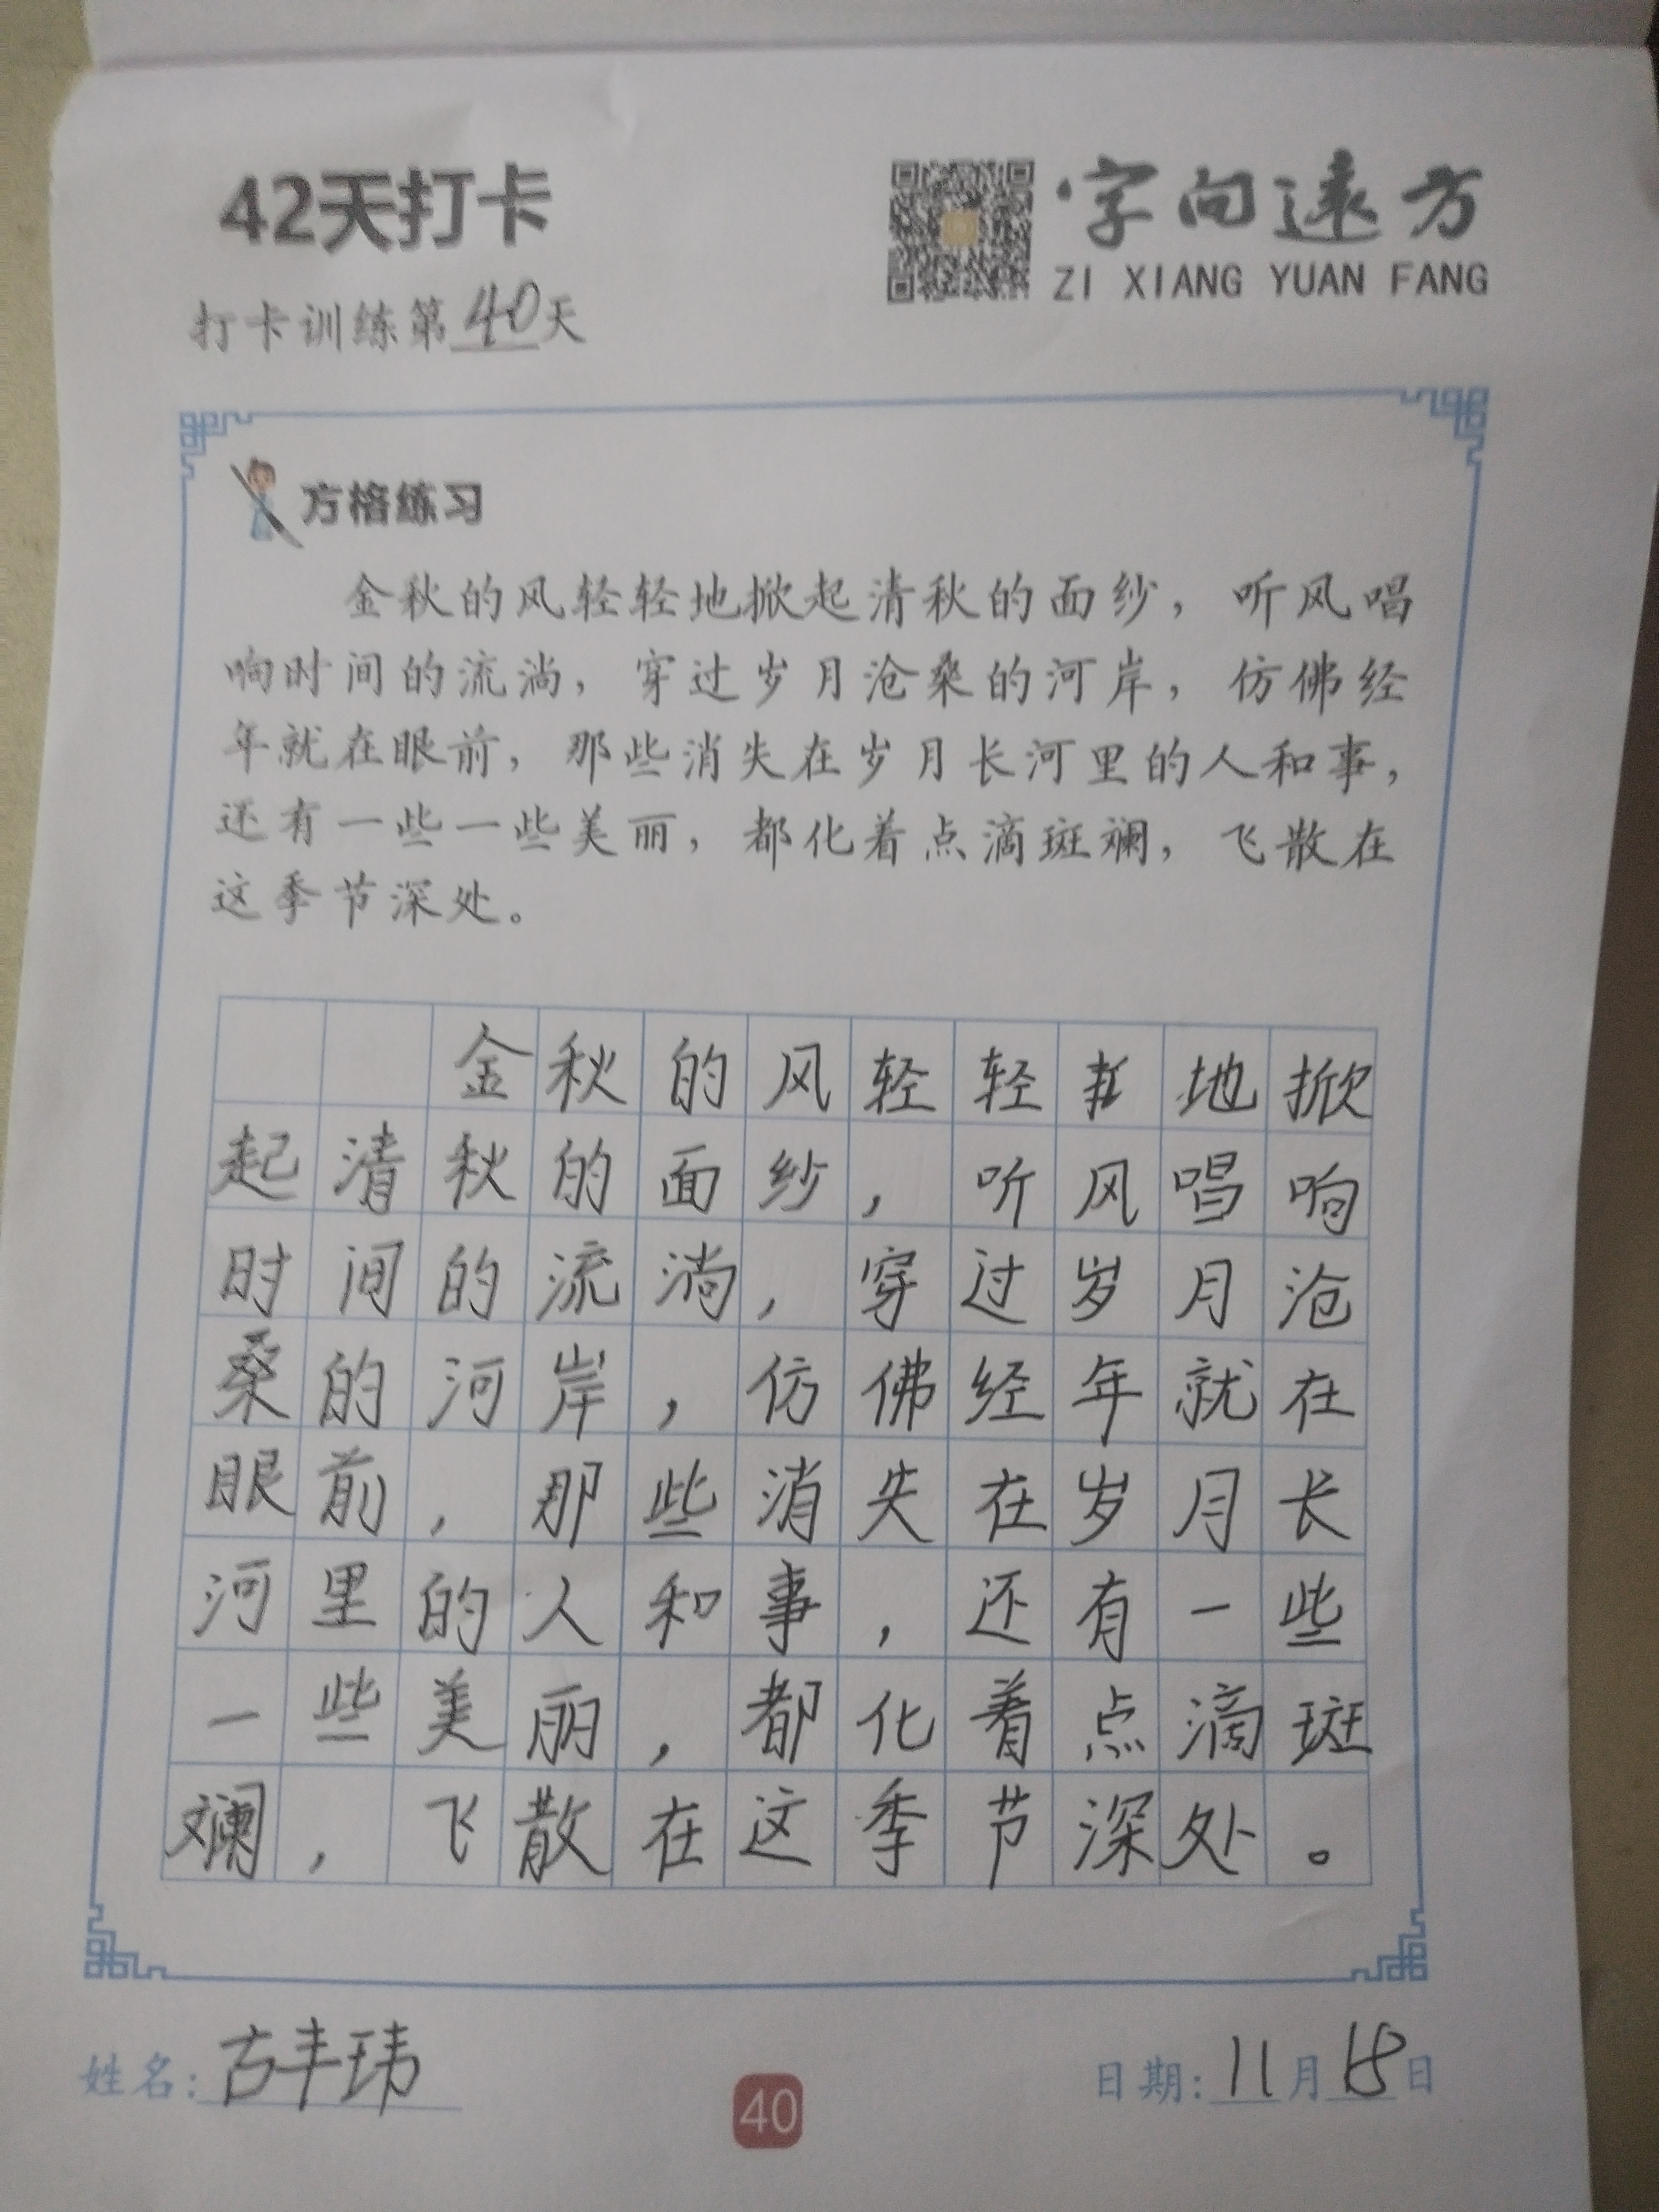 42天打卡
字向远方
ZI XIANG YUAN FANG
打卡训练第40天
方格练习
金秋的风轻轻地掀起清秋的面纱，听风唱
响时间的流淌，穿过岁月沧桑的河岸，仿佛经
年就在眼前，那些消失在岁月长河里的人和事，
还有一些一些美丽，都化着点滴斑斓，飞散在
这季节深处。
金秋的风轻轻地掀
起清秋的面纱，听风唱响
时间的流淌，穿过岁月沧
桑的河岸，仿佛经年就在
眼前，那些消失在岁月长
河里的人和事，还有一些
一些美丽，都化着点滴斑
斓，飞散在这季节深处。
姓名：古丰玮
40
日期：11月18日